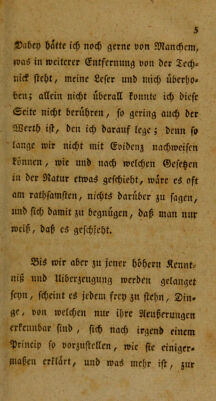 5
Dabey hätte ich noch gerne von Manchem,
was in weiterer Entfernung von der Tech-
nick steht, meine Leser und mich überho-
ben; allein nicht überall konnte ich diese
Seite nicht berühren, so gering auch der
Werth ist, den ich darauf lege; denn so
lange wir nicht mit Evidenz nachweisen
können, wie und nach welchen Gesetzen
in der Natur etwas geschieht, wäre es oft
am rathsamsten, nichts darüber zu sagen,
und sich damit zu begnügen, daß man nur
weiß, daß es geschieht.
Bis wir aber zu jener höhern Kennt-
niß und Uiberzeugung werden gelanget
seyn, scheint es jedem frey zu stehn, Din-
ge, von welchen nur ihre Aeußerungen
erkennbar sind, sich nach irgend einem
Princip so vorzustellen, wie sie einiger-
maßen erklärt, und was mehr ist, zur